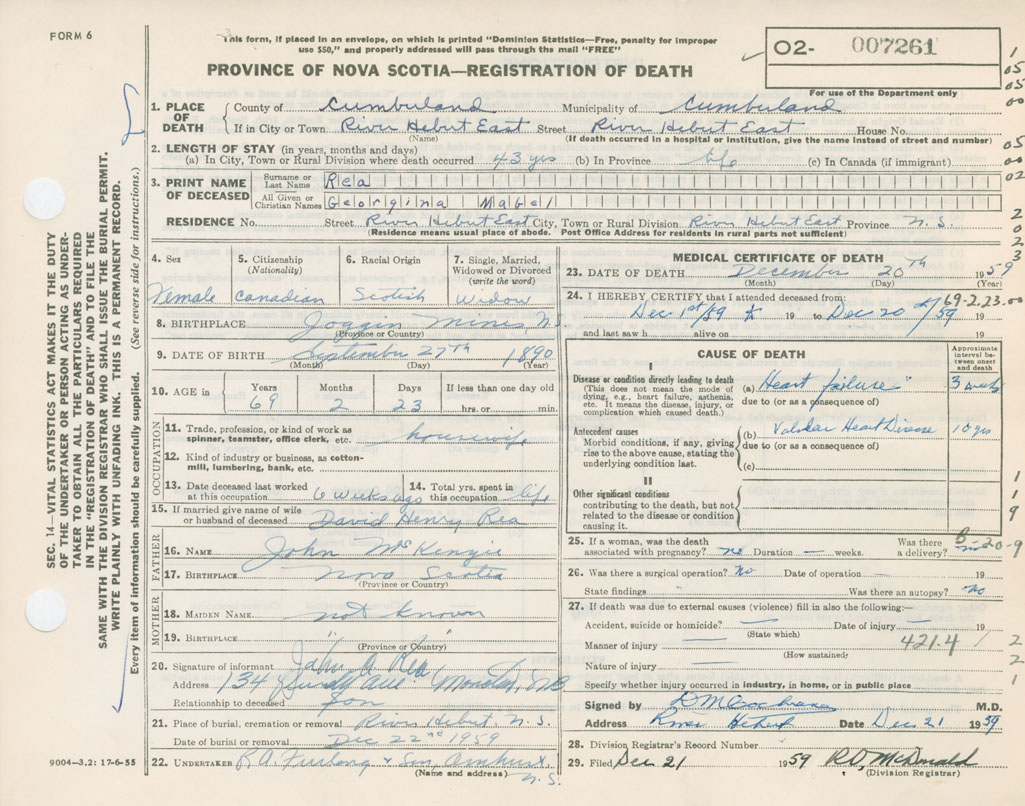 FORM 6
This form, if placed in an envelope, on which is printed "Dominion Statistics—Free, penalty for improper
use $50," and properly addressed will pass through the mail "FREE"
PROVINCE OF NOVA SCOTIA—REGISTRATION OF DEATH
02- 007261
For use of the Department only
1. PLACE OF DEATH
County of Cumberland Municipality of Cumberland
If in City or Town River Hebert East Street River Hebert East House No.
(Name) (If death occurred in a hospital or institution, give the name instead of street and number)
2. LENGTH OF STAY (in years, months and days)
(a) In City, Town or Rural Division where death occurred 43 yrs (b) In Province life (c) In Canada (if immigrant)
3. PRINT NAME OF DECEASED
Surname or Last Name Rea
All Given or Christian Names Georgina Mabel
RESIDENCE No. Street River Hebert East City, Town or Rural Division River Hebert East Province N.S.
(Residence means usual place of abode. Post Office Address for residents in rural parts not sufficient)
4. Sex
Female
5. Citizenship (Nationality)
Canadian
6. Racial Origin
Scotish
7. Single, Married, Widowed or Divorced (write the word)
Widow
8. BIRTHPLACE Joggin Mines, N.S.
(Province or Country)
9. DATE OF BIRTH September 27th 1890
(Month) (Day) (Year)
10. AGE in
Years Months Days If less than one day old
69 2 23 hrs. or min.
OCCUPATION
11. Trade, profession, or kind of work as
spinner, teamster, office clerk, etc. housewife
12. Kind of industry or business, as cotton-
mill, lumbering, bank, etc.
13. Date deceased last worked
at this occupation 6 weeks ago
14. Total yrs. spent in
this occupation life
15. If married give name of wife
or husband of deceased David Henry Rea
FATHER
16. NAME John McKenzie
17. BIRTHPLACE Nova Scotia
(Province or Country)
MOTHER
18. MAIDEN NAME not known
19. BIRTHPLACE " "
(Province or Country)
20. Signature of informant John A Rea
Address 134 Ave Moncton, NB
Relationship to deceased Son
21. Place of burial, cremation or removal River Hebert, N.S.
Date of burial or removal Dec 22nd 1959
22. UNDERTAKER R.A. Furlong & Son Amherst,
(Name and address) N.S.
MEDICAL CERTIFICATE OF DEATH
23. DATE OF DEATH December 20th 1959
(Month) (Day) (Year)
69-2-23.00
24. I HEREBY CERTIFY that I attended deceased from:
Dec 1st/59 19 to Dec 20 /59 19
and last saw h alive on 19
CAUSE OF DEATH
Approximate interval between onset and death
I
Disease or condition directly leading to death
(This does not mean the mode of
dying, e.g., heart failure, asthenia,
etc. It means the disease, injury, or
complication which caused death.)
(a) Heart failure 3 weeks
due to (or as a consequence of)
Antecedent causes
Morbid conditions, if any, giving
rise to the above cause, stating the
underlying condition last.
(b) Valvular Heart Disease 10 yrs
due to (or as a consequence of)
(c)
II
Other significant conditions
contributing to the death, but not
related to the disease or condition
causing it.
25. If a woman, was the death
associated with pregnancy? no Duration — weeks.
Was there
a delivery? no
26. Was there a surgical operation? No Date of operation — 19
State findings Was there an autopsy? no
27. If death was due to external causes (violence) fill in also the following:—
Accident, suicide or homicide? — Date of injury — 19
(State which)
Manner of injury — 421.4
(How sustained)
Nature of injury —
Specify whether injury occurred in industry, in home, or in public place
Signed by D M Cochrane M.D.
Address River Hebert Date Dec 21 1959
28. Division Registrar's Record Number
29. Filed Dec 21 1959 R D. McDonald
(Division Registrar)
SEC. 14—VITAL STATISTICS ACT MAKES IT THE DUTY
OF THE UNDERTAKER OR PERSON ACTING AS UNDER-
TAKER TO OBTAIN ALL THE PARTICULARS REQUIRED
IN THE "REGISTRATION OF DEATH" AND TO FILE THE
SAME WITH THE DIVISION REGISTRAR WHO SHALL ISSUE THE BURIAL PERMIT.
WRITE PLAINLY WITH UNFADING INK. THIS IS A PERMANENT RECORD.
Every item of information should be carefully supplied. (See reverse side for instructions.)
9004—3,2: 17-6-55
1
05
05
00
05
00
02
2
0
2
3
1
1
9
2
2
1